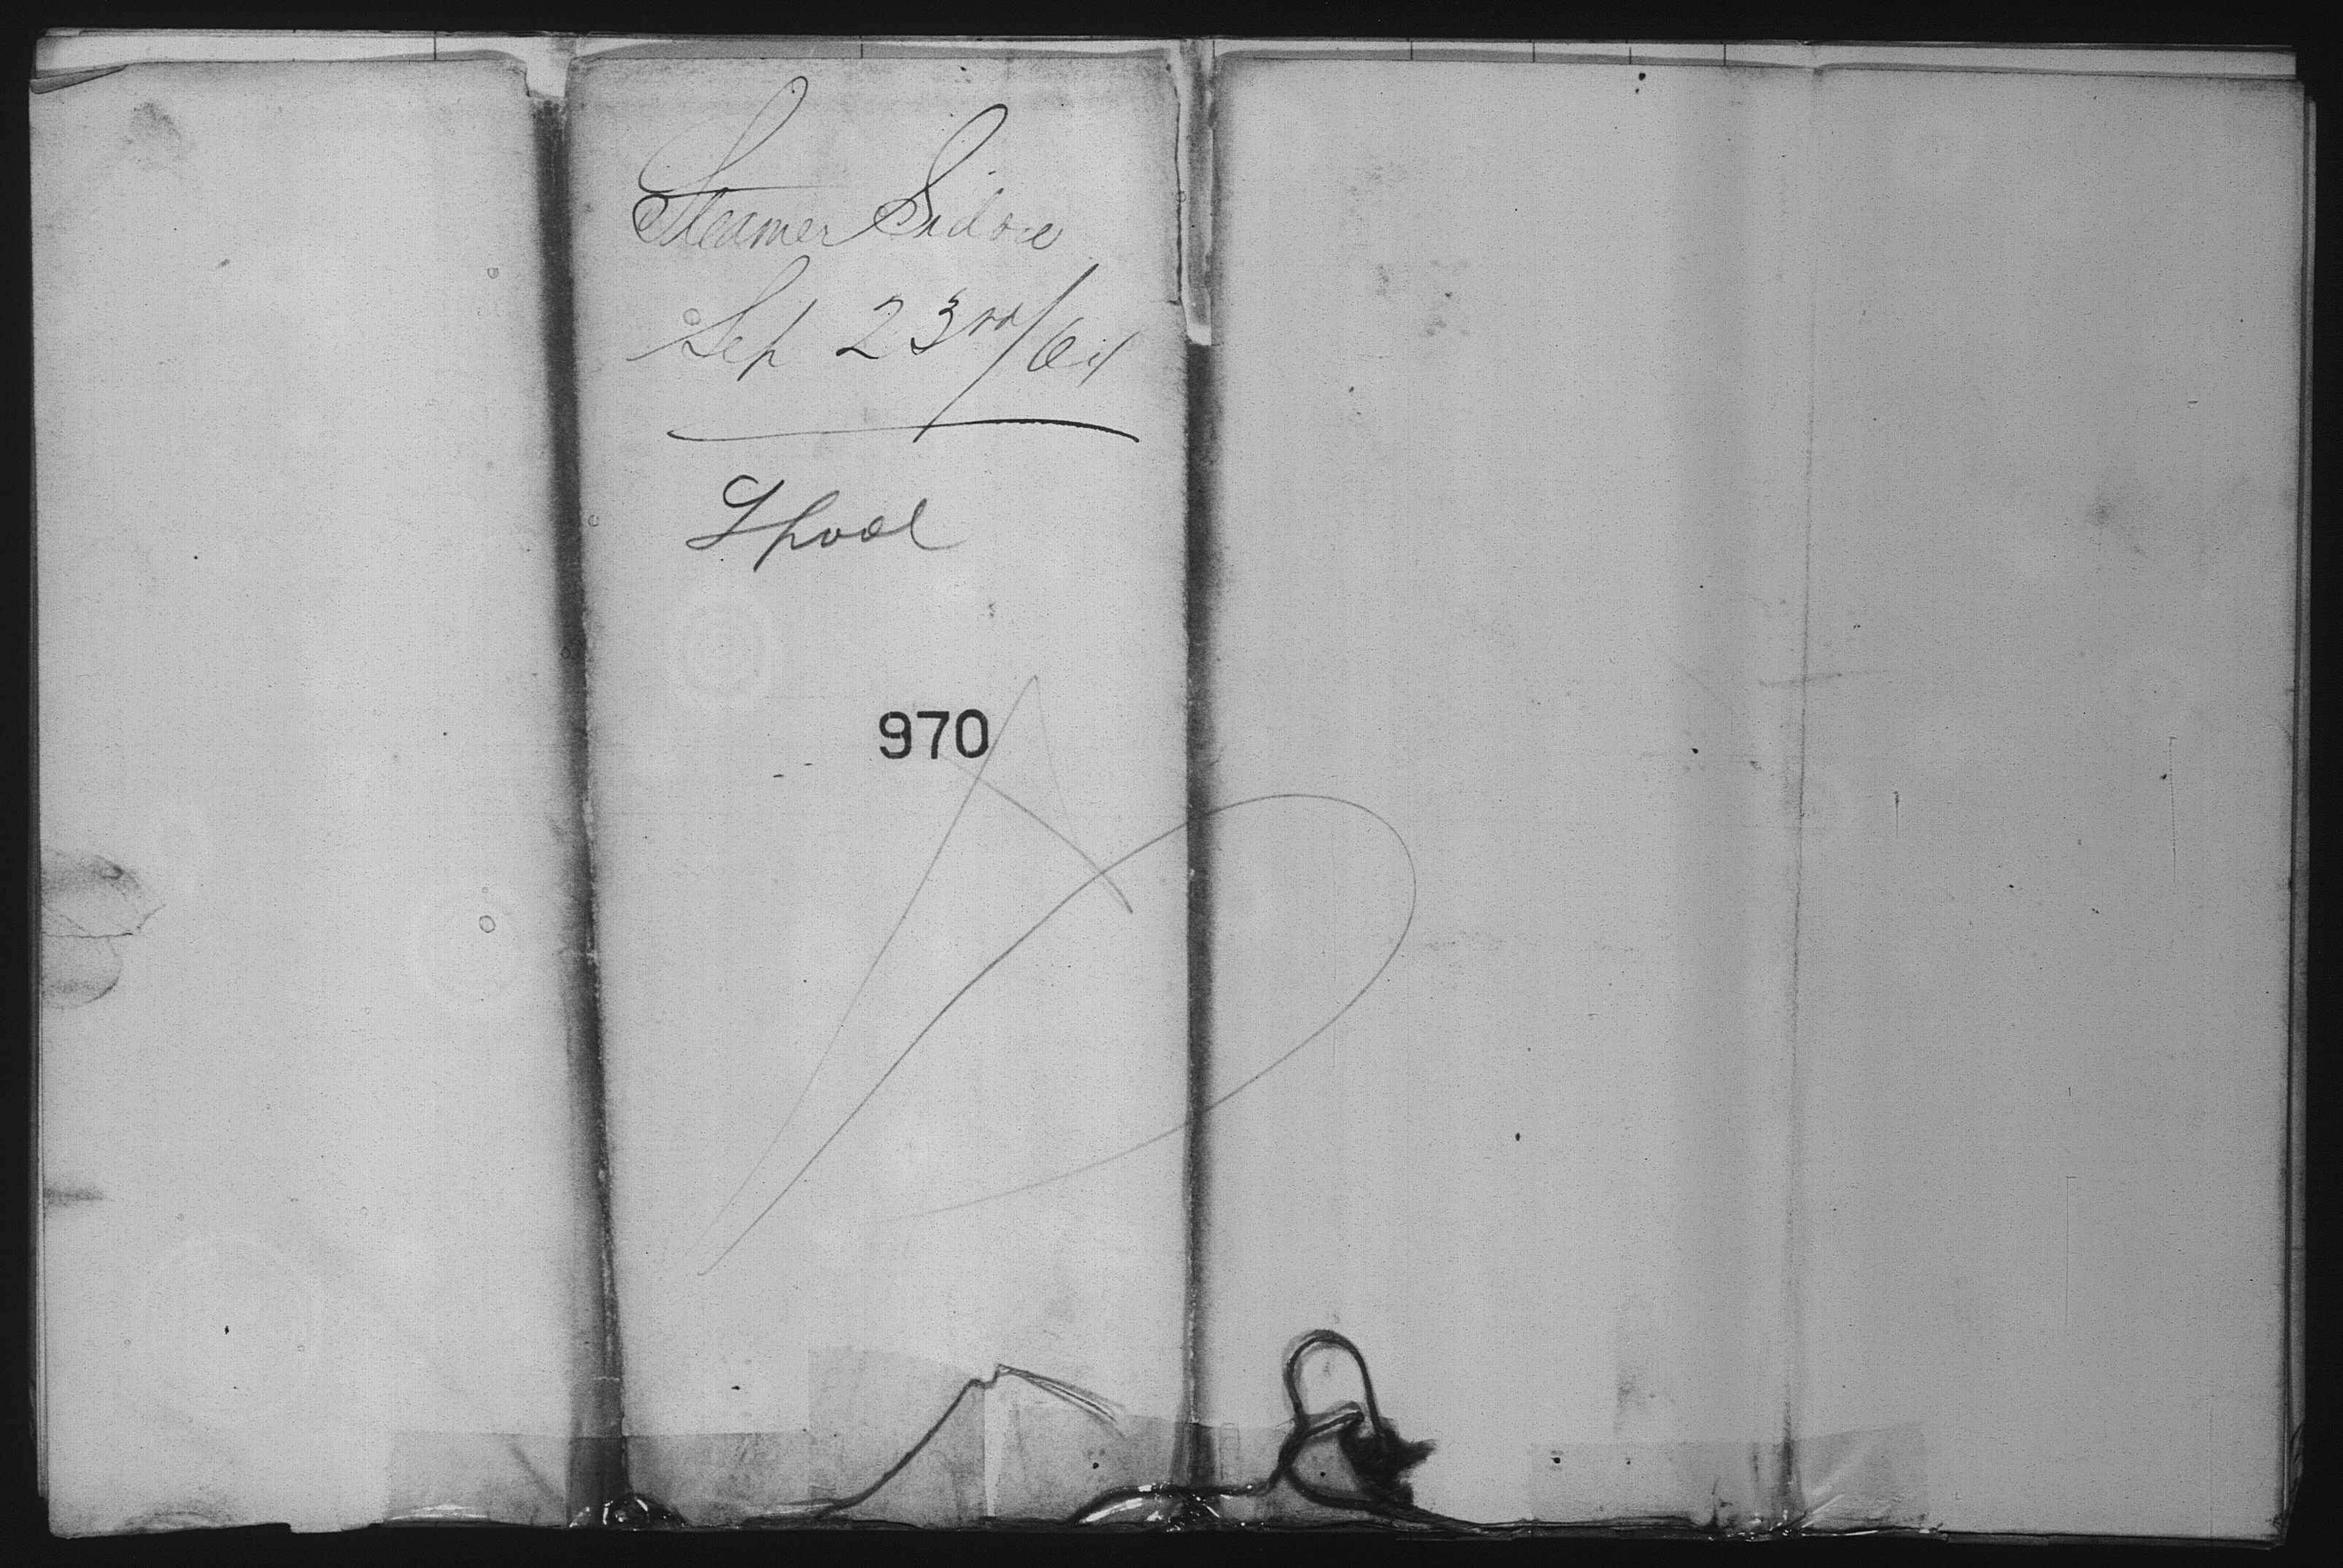 Steamer Sidon
Sep 23rd/64
Lpool
970